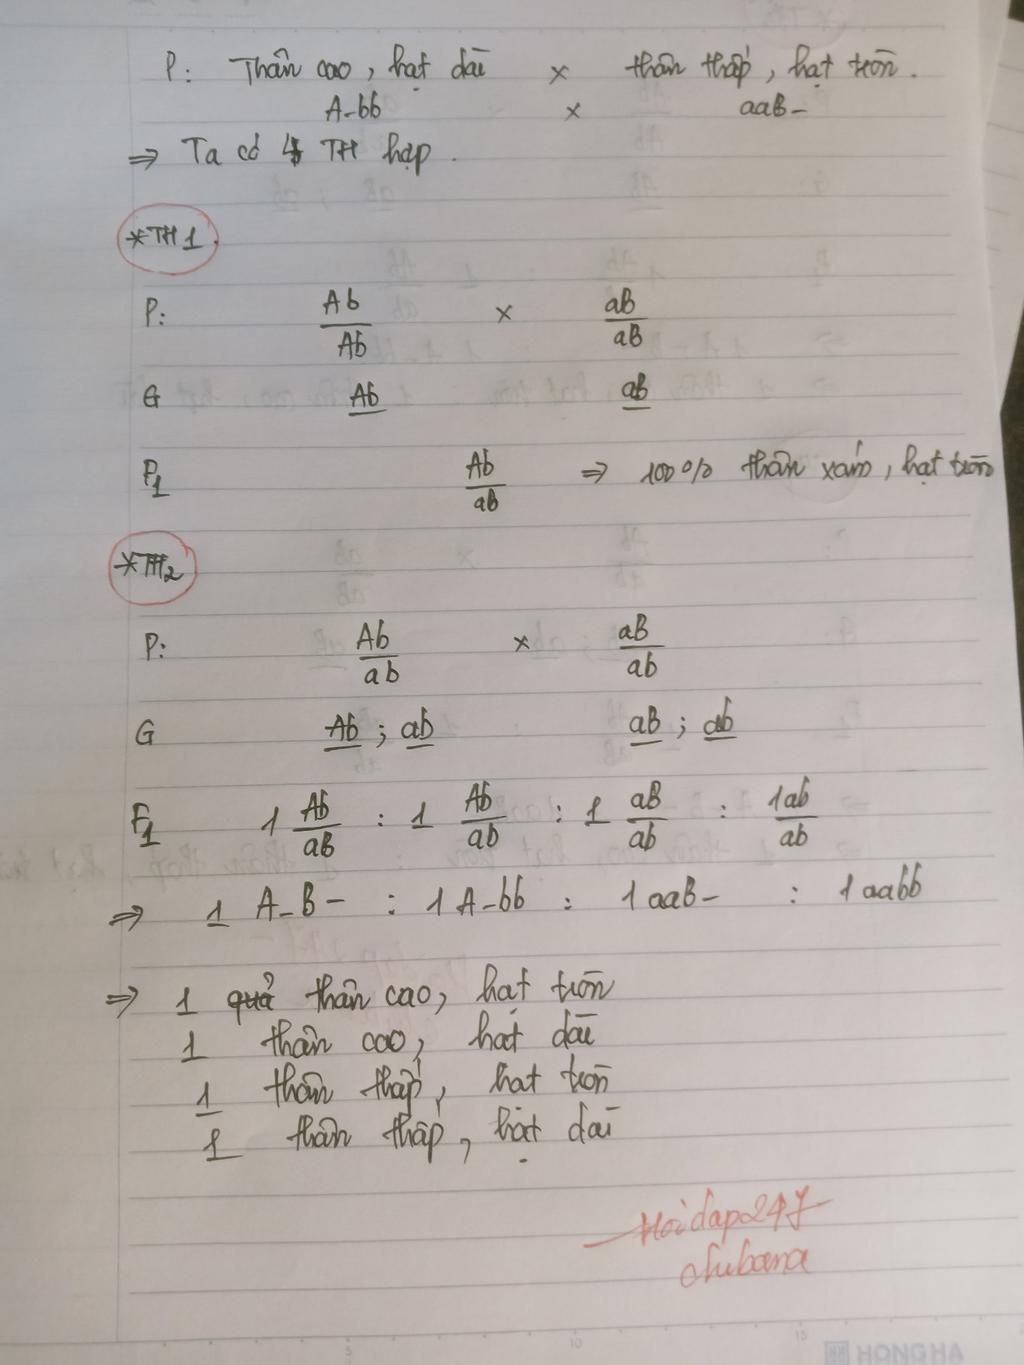 P: Thân cao, hạt dài × thân thấp, hạt tròn.
A-bb × aaB-
⇒ Ta có 4 TH hạp.
*TH1.
P: Ab/Ab × aB/aB
G Ab aB
F1 Ab/aB ⇒ 100% thân xám, hạt tròn
*TH2
P: Ab/ab × aB/ab
G Ab ; ab aB ; ab
F1 1 Ab/aB : 1 Ab/ab : 1 aB/ab : 1ab/ab
⇒ 1 A-B- : 1 A-bb : 1 aaB- : 1 aabb
⇒ 1 quả thân cao, hạt tròn
1 thân cao, hạt dài
1 thân thấp, hạt tròn
1 thân thấp, hạt dài
Hoidap247
chubana
HONG HA